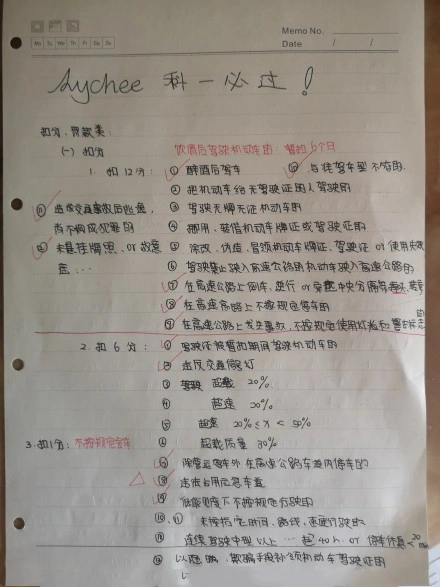 Memo No.
Mo Tu We Th Fr Sa Su
Date / /
Lychee 科一必过!
扣分、罚款类:
(一) 扣分
饮酒后驾驶机动车的: 暂扣6个月
1. 扣12分: ① 醉酒后驾车 ⑩ 与准驾车型不符的.
⑪ 造成交通事故后逃逸, ② 把机动车给无驾驶证的人驾驶的
尚不构成犯罪的 ③ 驾驶无牌无证机动车的
⑫ 未悬挂牌照、or 故意 ④ 挪用、转借机动车牌证或驾驶证的
⑤ 涂改、伪造、冒领机动车牌证、驾驶证 or 使用失效
⑥ 驾驶禁止驶入高速公路的机动车驶入高速公路的
⑦ 在高速公路上回车、逆行 or 穿越中央分隔带
⑧ 在高速公路上不按规定停车的
⑨ 在高速公路上发生事故, 不按规定使用灯光和警告标志
2. 扣6分: ① 驾驶证被暂扣期间驾驶机动车的
② 违反交通信号灯
③ 驾驶 超载 20%
④ 超速 20%
⑤ 超速 20% ≤ x < 50%
3. 扣1分: 不按规定会车 ⑥ 超载质量 30%
⑦ 除营运客车外在高速公路车道内停车的
⑧ 违法占用应急车道
⑨ 低能见度下不按规定行驶的
⑩、⑪ 未按指定时间、路线、速度行驶的
⑫ 连续驾驶中型以上… 超4h. or 停车休息<20min
⑬ 以隐瞒、欺骗手段补领机动车驾驶证的